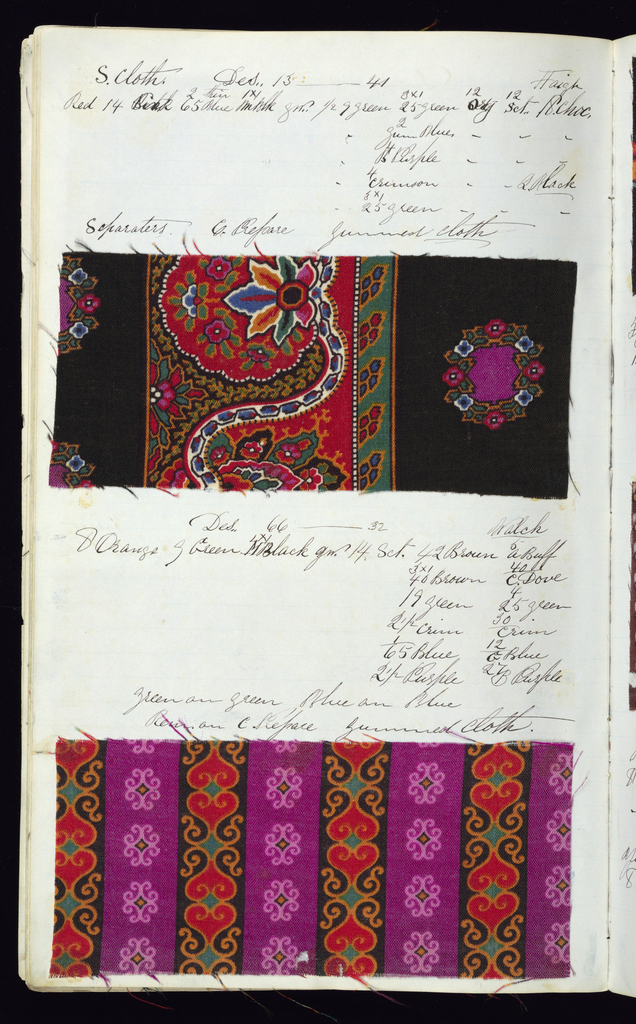 S. Cloth. Des. 13 — 41 Haigh
Red 14 65 Blue gm. 1/2 9 green 3x1 25 green 12 12 Sct. R. Choc.
" 2 gum Blues " " "
" Purple " " "
" 4 Crimson " - 2 Black
3x1 25 green " " "
Separaters. C. Prepare gummed cloth
Des. 66 — 32 Walch
8 Orange 9 Green Black gm. 14. Sct. 42 Brown Buff
3x1 40 Brown 40 C. Dove
19 green 4 25 green
2 1/2 Crim 30 Crim
65 Blue 12 C Blue
2 1/2 Purple Purple
green on green Blue on Blue
Run on C. Prepare gummed cloth.